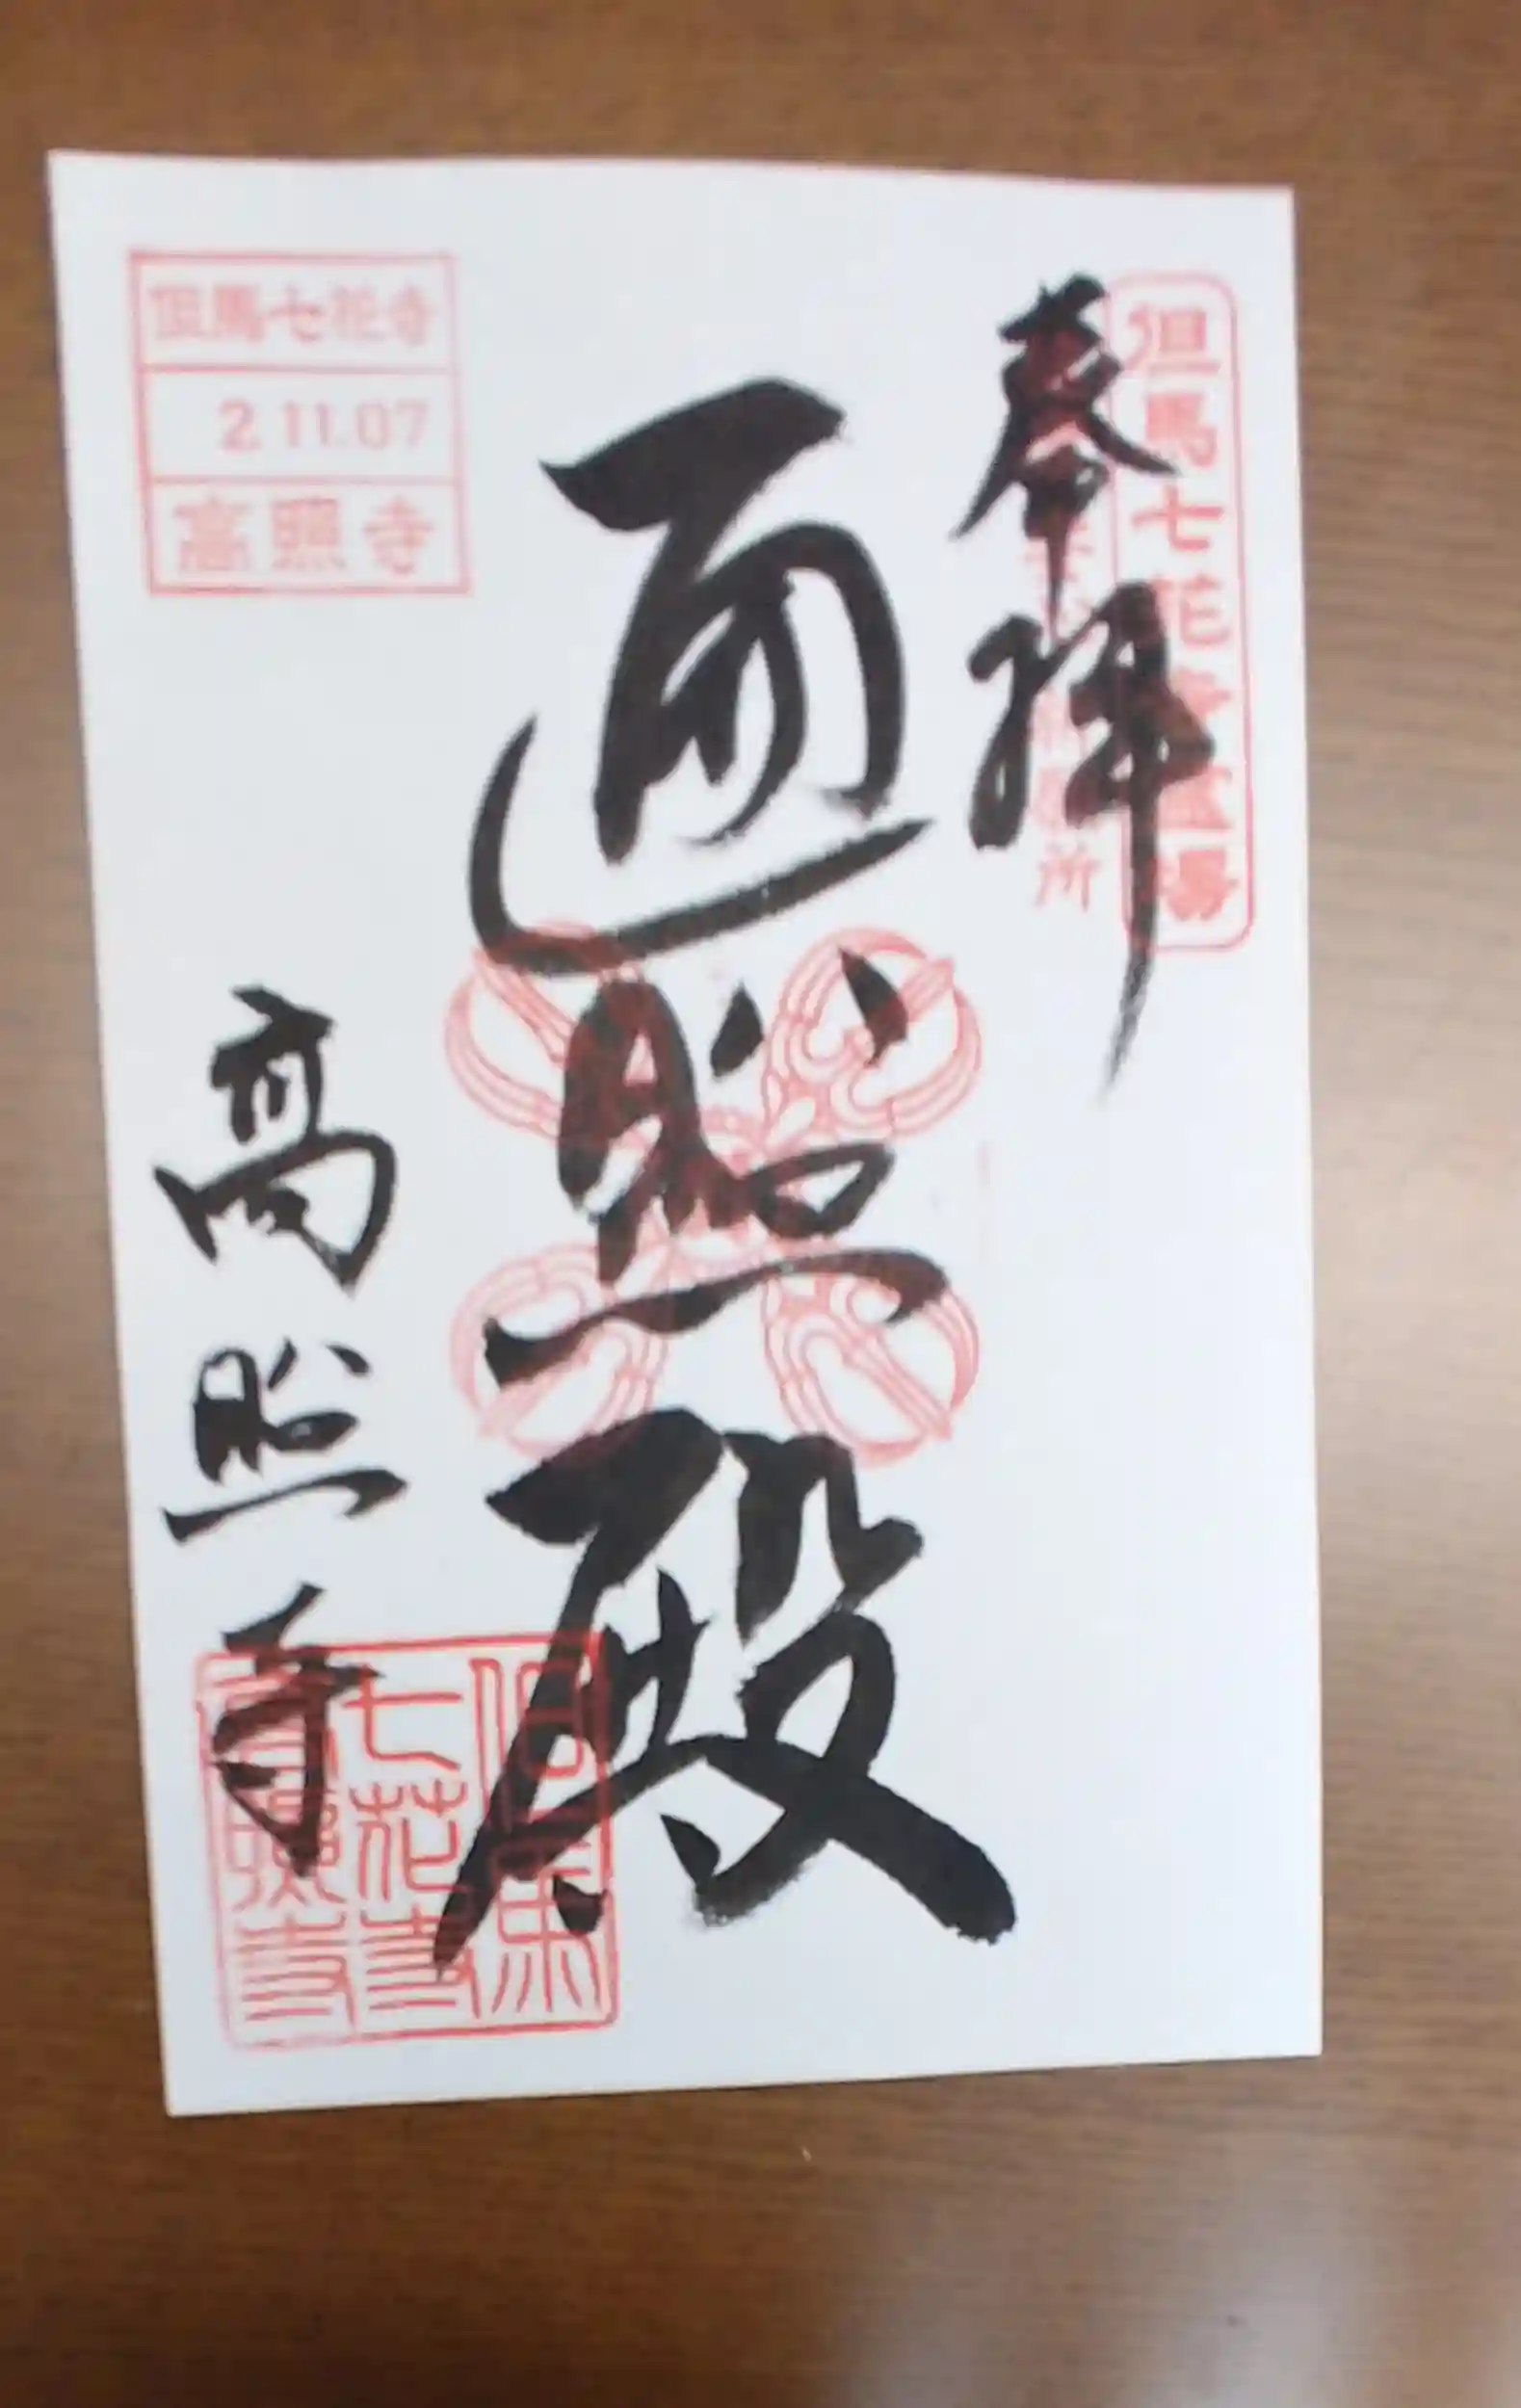 但馬七花寺霊場
奉拝
遍照殿
高照寺
但馬七花寺
2.11.07
高照寺
但馬
七花寺
高照寺